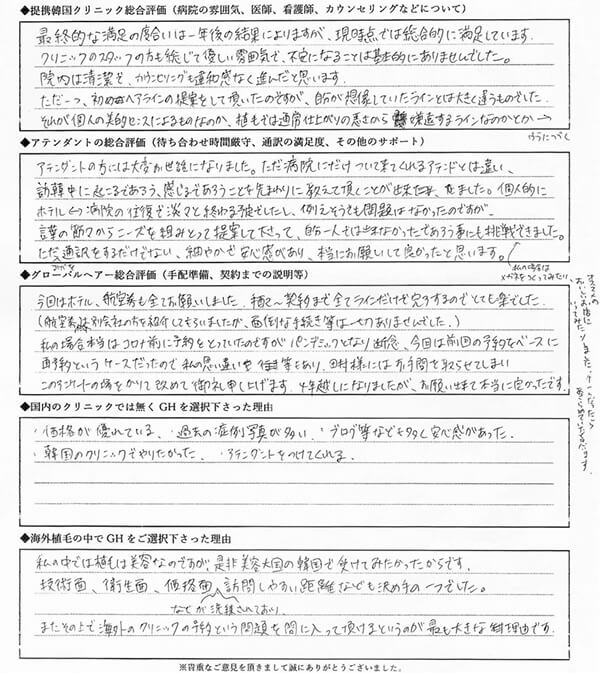 ◆提携韓国クリニック総合評価（病院の雰囲気、医師、看護師、カウンセリングなどについて）
最終的な満足の度合いは一年後の結果によりますが、現時点では総合的に満足しています。
クリニックのスタッフの方も総じて優しい雰囲気で、不安になることは基本的にありませんでした。
院内は清潔で、カウンセリングも違和感なく進んだと思います。
ただ一つ、初めヘアラインの提案をして頂いたのですが、自分が想像していたラインとは大きく違うものでした。
それが個人の美的センスによるものなのか、植毛では通常仕上がりの悪さから 嫌遠するラインなのかとか→
ゆうにつづく
◆アテンダントの総合評価（待ち合わせ時間厳守、通訳の満足度、その他のサポート）
アテンダントの方には大変お世話になりました。ただ病院にだけついて来てくれるアテンドとは違い、
訪韓中に起こるであろう、感じるであろうことを先まわりに教えて頂くことが出来ました。個人的に
ホテル⇔病院の往復で淡々と終わる予定でしたし、例えそうでも問題はなかったのですが、
言葉の節々からニーズを組みとって提案して下さって、自分一人では出来なかったであろう事にも挑戦できました。
ただ通訳をするだけでない、細やかで安心感があり、本当にお願いして良かったと思います。
私の場合は
メガネをつくってみたり、
オススメの
おいしいお店に
いってみたり
◆グローバルヘアー総合評価（手配準備、契約までの説明等）
今回はホテル、航空券も全てお願いしました。相談〜契約まで全てラインだけで完了するのでとても楽でした。
（航空券は別会社の方を紹介してもらいましたが、面倒な手続き等は一切ありませんでした。）
私の場合本当はコロナ前に予約をとっていたのですが パンデミックとなり断念、今回は前回の予約をベースに
再予約というケースだったので 私の思い違いや 行き 等もあり、田村様には お手間を取らせてしまい
このアンケートの場をかりて改めて御礼申し上げます。4年越しになりましたが、お願い出来て本当に良かったです。
◆国内のクリニックでは無くGHを選択下さった理由
・価格が優れている、・過去の症例写真が多い、・ブログ等なども多く安心感があった。
・韓国のクリニックでやりたかった、・アテンダントをつけてくれる。
◆海外植毛の中でGHをご選択下さった理由
私の中では植毛は美容なのですが、是非美容大国の韓国で受けてみたかったからです。
技術面、衛生面、価格面、訪問しやすい距離なども決め手の一つでした。
などが洗練されており、
またその上で海外のクリニックの予約という問題を間に入って頂けるというのが最も大きな理由です。
※貴重なご意見を頂きまして誠にありがとうございました。